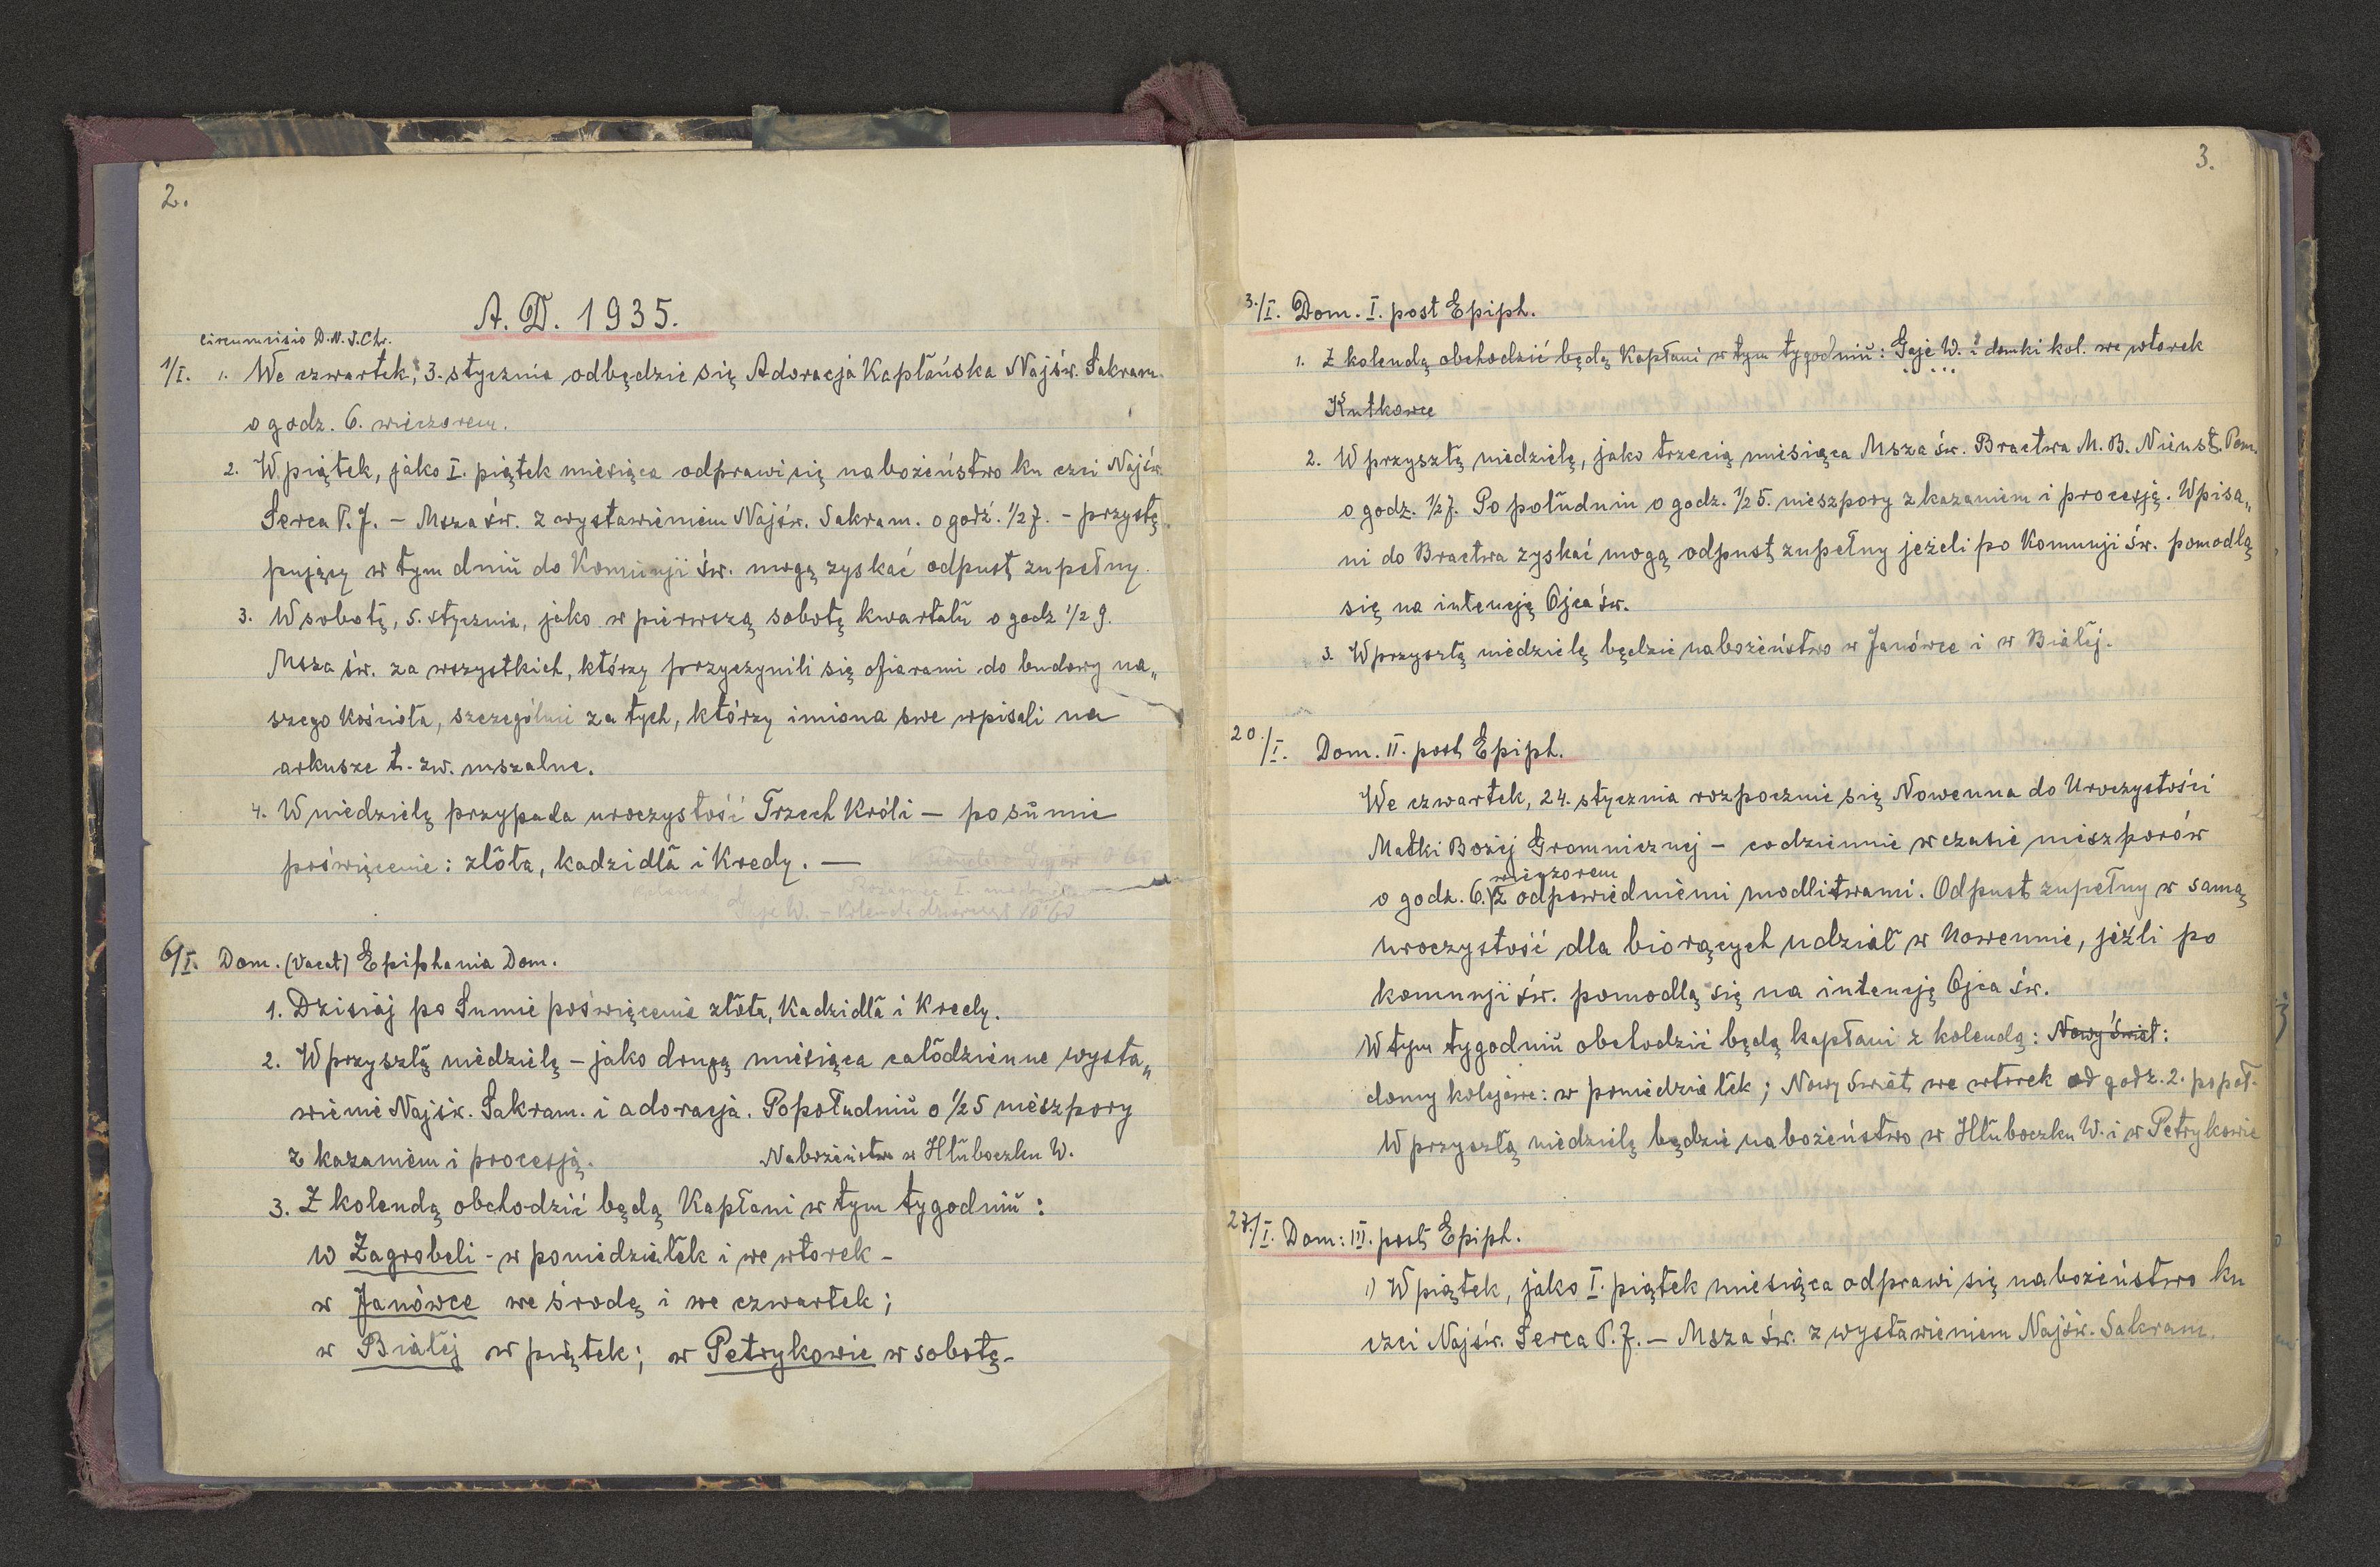 2.
A. D. 1935.
Circumcisio D. N. J. Chr.
1/I. 1. We czwartek, 3. stycznia odbędzie się Adoracja Kapłańska Najśw. Sakram.
o godz. 6. wieczorem.
2. W piątek, jako I. piątek miesiąca odprawi się nabożeństwo ku czci Najśw.
Serca P. J. – Msza św. z wystawieniem Najśw. Sakram. o godź. 1/2 7. – przystę„
pujący w tym dniu do Komunji św. mogą zyskać odpust zupełny.
3. W sobotę, 5. stycznia, jako w pierwszą sobotę kwartału o godz 1/2 9.
Msza św. za wszystkich, którzy przyczynili się ofiarami do budowy na„
szego Kościoła, szczególnie za tych, którzy imiona swe wpisali na
arkusze t. zw. mszalne.
4. W niedzielę przypada uroczystość Trzech Króli – po sumie
poświęcenie: złota, kadzidła i Kredy. —
Gaje W. – Kolenda
6/I. Dom. (Vacat) Epiphania Dom.
1. Dzisiaj po Sumie poświęcenie złota, Kadzidła i Kredy.
2. W przyszłą niedzielę – jako drugą miesiąca całodzienne wysta„
wienie Najśw. Sakram. i adoracja. Popołudniu o 1/2 5 nieszpory
z kazaniem i procesją. Nabożeństwo w Hłuboczku W.
3. Z kolendą obchodzić będą Kapłani w tym tygodniu:
w Zagrobeli - w poniedziałek i we wtorek –
w Janówce we środę i we czwartek;
w Białej w piątek; w Petrykowie w sobotę.
3.
3./I. Dom. I. post Epiph.
1. Z kolendą obchodzić będą Kapłani w tym tygodniu: Gaje W. i domki kol. we wtorek
Kutkowce
2. W przyszłą niedzielę, jako trzecią miesiąca Msza św. Bractwa M. B. Nieust. Pom.
o godz. 1/2 7. Po południu o godz. 1/2 5. nieszpory z kazaniem i procesją. Wpisa„
ni do Bractwa zyskać mogą odpust zupełny jeżeli po Komunji św. pomodlą
się na intencję Ojca św.
3. W przyszłą niedzielę będzie nabożeństwo w Janówce i w Białej.
20./I. Dom. II. post Epiph.
We czwartek, 24. stycznia rozpocznie się Nowenna do Uroczystości
Matki Bożej Gromnicznej – codziennie w czasie nieszporów
wieczorem
o godz. 6. z odpowiedniemi modlitwami. Odpust zupełny w samą
uroczystość dla biorących udział w Nowennie, jeźli po
komunji św. pomodlą się na intencję Ojca św.
W tym tygodniu obchodzić będą kapłani z kolendą: Nowy Świat:
domy kolejowe: w poniedziałek; Nowy Świat we wtorek od godz. 2. popoł.
W przyszłą niedzielę będzie nabożeństwo w Hłuboczku W. i w Petrykowie
27./I. Dom: III. post Epiph.
1) W piątek, jako I. piątek miesiąca odprawi się nabożeństwo ku
czci Najśw. Serca P. J. – Msza św. z wystawieniem Najśw. Sakram.